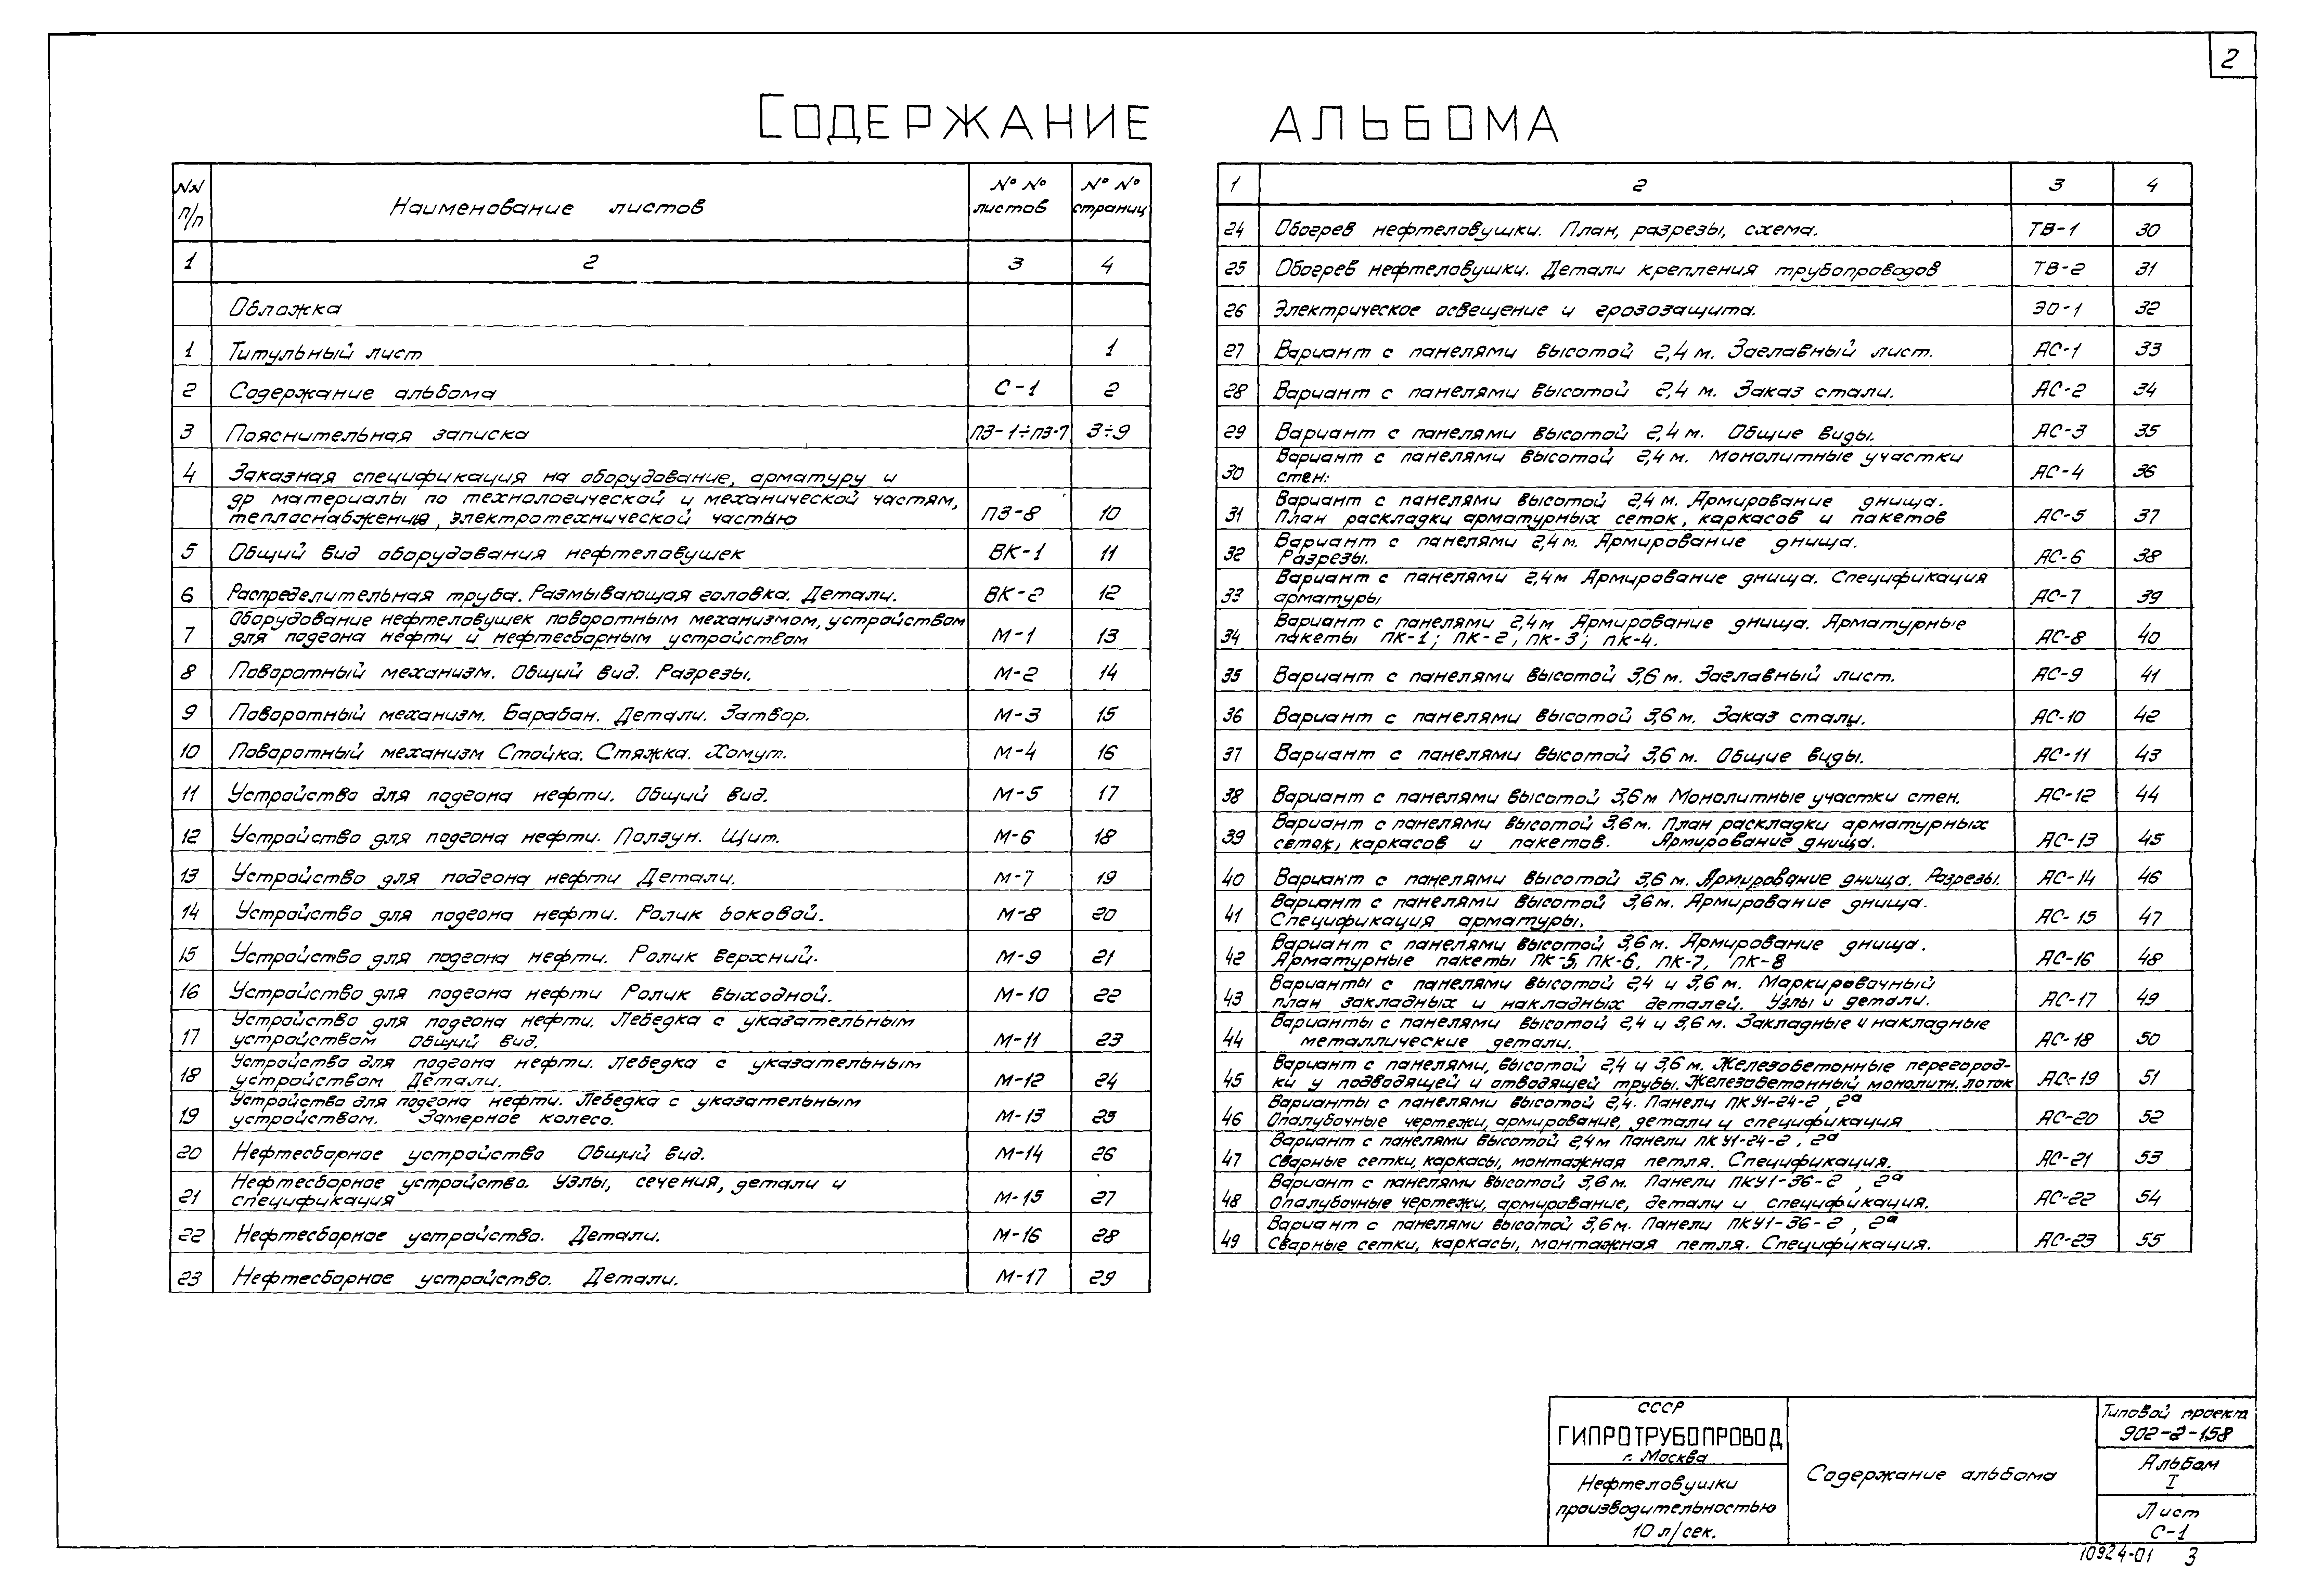 2
СОДЕРЖАНИЕ АЛЬБОМА
NN п/п Наименование листов №№ листов №№ страниц
1 2 3 4
Обложка
1 Титульный лист 1
2 Содержание альбома С-1 2
3 Пояснительная записка ПЗ-1÷ПЗ-7 3÷9
4 Заказная спецификация на оборудование, арматуру и
др материалы по технологической и механической частям,
теплоснабжения, электротехнической частью ПЗ-8 10
5 Общий вид оборудования нефтеловушек ВК-1 11
6 Распределительная труба. Размывающая головка. Детали. ВК-2 12
7 Оборудование нефтеловушек поворотным механизмом, устройством
для подгона нефти и нефтесборным устройством М-1 13
8 Поворотный механизм. Общий вид. Разрезы. М-2 14
9 Поворотный механизм. Барабан. Детали. Затвор. М-3 15
10 Поворотный механизм Стойка. Стяжка. Хомут. М-4 16
11 Устройство для подгона нефти. Общий вид. М-5 17
12 Устройство для подгона нефти. Ползун. Щит. М-6 18
13 Устройство для подгона нефти Детали. М-7 19
14 Устройство для подгона нефти. Ролик боковой. М-8 20
15 Устройство для подгона нефти. Ролик верхний. М-9 21
16 Устройство для подгона нефти Ролик выходной. М-10 22
17 Устройство для подгона нефти. Лебедка с указательным
устройством Общий вид. М-11 23
18 Устройство для подгона нефти. Лебедка с указательным
устройством Детали. М-12 24
19 Устройство для подгона нефти. Лебедка с указательным
устройством. Замерное колесо. М-13 25
20 Нефтесборное устройство Общий вид. М-14 26
21 Нефтесборное устройство. Узлы, сечения, детали и
спецификация М-15 27
22 Нефтесборное устройство. Детали. М-16 28
23 Нефтесборное устройство. Детали. М-17 29
1 2 3 4
24 Обогрев нефтеловушки. План, разрезы, схема. ТВ-1 30
25 Обогрев нефтеловушки. Детали крепления трубопроводов ТВ-2 31
26 Электрическое освещение и грозозащита. ЭО-1 32
27 Вариант с панелями высотой 2,4 м. Заглавный лист. АС-1 33
28 Вариант с панелями высотой 2,4 м. Заказ стали. АС-2 34
29 Вариант с панелями высотой 2,4 м. Общие виды. АС-3 35
30 Вариант с панелями высотой 2,4 м. Монолитные участки
стен. АС-4 36
31 Вариант с панелями высотой 2,4 м. Армирование днища.
План раскладки арматурных сеток, каркасов и пакетов АС-5 37
32 Вариант с панелями 2,4 м. Армирование днища.
Разрезы. АС-6 38
33 Вариант с панелями 2,4 м Армирование днища. Спецификация
арматуры АС-7 39
34 Вариант с панелями 2,4 м Армирование днища. Арматурные
пакеты ПК-1; ПК-2, ПК-3; ПК-4. АС-8 40
35 Вариант с панелями высотой 3,6 м. Заглавный лист. АС-9 41
36 Вариант с панелями высотой 3,6 м. Заказ стали. АС-10 42
37 Вариант с панелями высотой 3,6 м. Общие виды. АС-11 43
38 Вариант с панелями высотой 3,6 м Монолитные участки стен. АС-12 44
39 Вариант с панелями высотой 3,6 м. План раскладки арматурных
сеток, каркасов и пакетов. Армирование днища. АС-13 45
40 Вариант с панелями высотой 3,6 м. Армирование днища. Разрезы. АС-14 46
41 Вариант с панелями высотой 3,6 м. Армирование днища.
Спецификация арматуры. АС-15 47
42 Вариант с панелями высотой 3,6 м. Армирование днища.
Арматурные пакеты ПК-5, ПК-6, ПК-7, ПК-8 АС-16 48
43 Варианты с панелями высотой 2,4 и 3,6 м. Маркировочный
план закладных и накладных деталей. Узлы и детали. АС-17 49
44 Варианты с панелями высотой 2,4 и 3,6 м. Закладные и накладные
металлические детали. АС-18 50
45 Вариант с панелями, высотой 2,4 и 3,6 м. Железобетонные перегород-
ки у подводящей и отводящей трубы. Железобетонный монолитн. лоток АС-19 51
46 Варианты с панелями высотой 2,4. Панели ПКУ1-24-2, 2а
Опалубочные чертежи, армирование, детали и спецификация АС-20 52
47 Вариант с панелями высотой 2,4 м Панели ПКУ1-24-2, 2а
Сварные сетки, каркасы, монтажная петля. Спецификация. АС-21 53
48 Вариант с панелями высотой 3,6 м. Панели ПКУ1-36-2, 2а
Опалубочные чертежи, армирование, детали и спецификация. АС-22 54
49 Вариант с панелями высотой 3,6 м. Панели ПКУ1-36-2, 2а
Сварные сетки, каркасы, монтажная петля. Спецификация. АС-23 55
СССР
ГИПРОТРУБОПРОВОД
г. Москва
Нефтеловушки
производительностью
10 л/сек.
Содержание альбома
Типовой проект
902-2-158
Альбом
I
Лист
С-1
10924-01 3